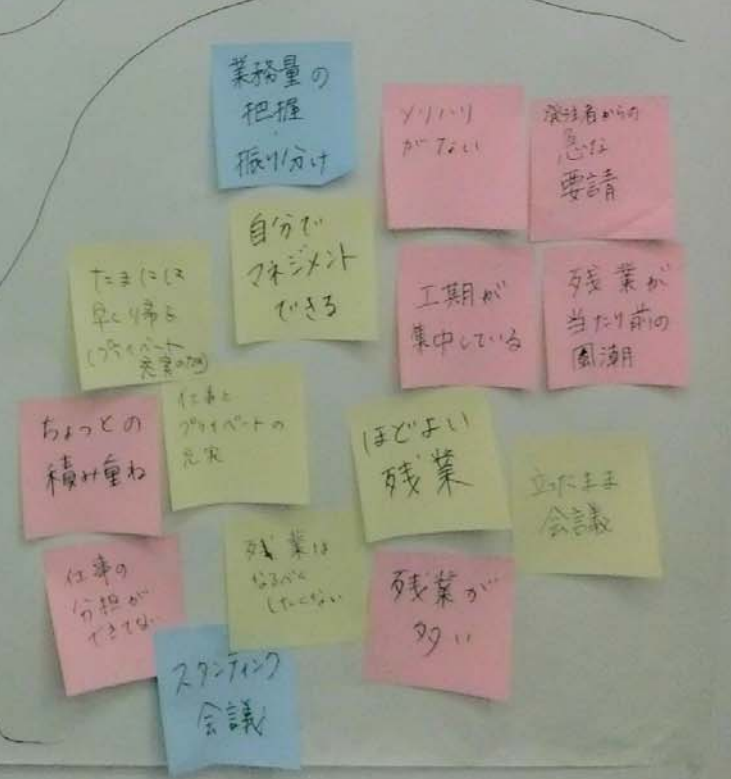 業務量の
把握
・
振り分け
メリハリ
がない
発注者からの
急な
要請
自分で
マネジメント
できる
たまには
早く帰る
(プライベート
充実のため)
工期が
集中している
残業が
当たり前の
風潮
ちょっとの
積み重ね
仕事と
プライベートの
充実
ほどよい
残業
立ったまま
会議
仕事の
分担が
できてない
残業は
なるべく
したくない
残業が
多い
スタンディング
会議